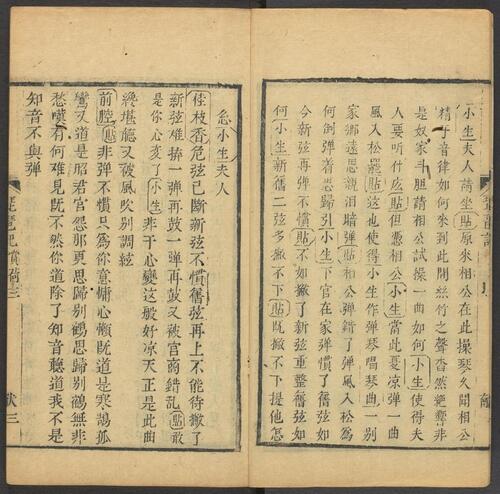 小生夫人請坐貼原來相公在此操琴久聞相公
精于音律如何來到此間絲竹之聲杳然絶響非
是奴家斗胆請相公試操一曲如何小生使得夫
人要听什庅貼但憑相公小生當此夏凉弹一曲
風入松罷貼這也使得小生作弹琴唱琴曲一别
家鄉遠思親泪暗弹貼相公弹錯了弹風入松爲
何倒弹着思歸引小生下官在家弹慣了舊弦如
今新弦再弹不慣貼不如撇了新弦重整舊弦如
何小生新舊二弦多撇不下貼既撇不下提他怎
忩小生夫人
桂枝香危弦已斷新弦不慣舊弦再上不能待撇了
新弦難拚一弹再鼓一弹再鼓又被宫商錯乱貼敢
是你心変了小生非干心變這般好凉天正是此曲
纔堪聽又被風吹别調綫
前腔貼非弹不慣只為你意慵心懶既道是寒鴣孤
鸞又道是昭君宫怨那更思歸别鶴思歸别鶴無非
愁嘆有何難見既不然你道除了知音聽道我不是
知音不與弹
琵琶記